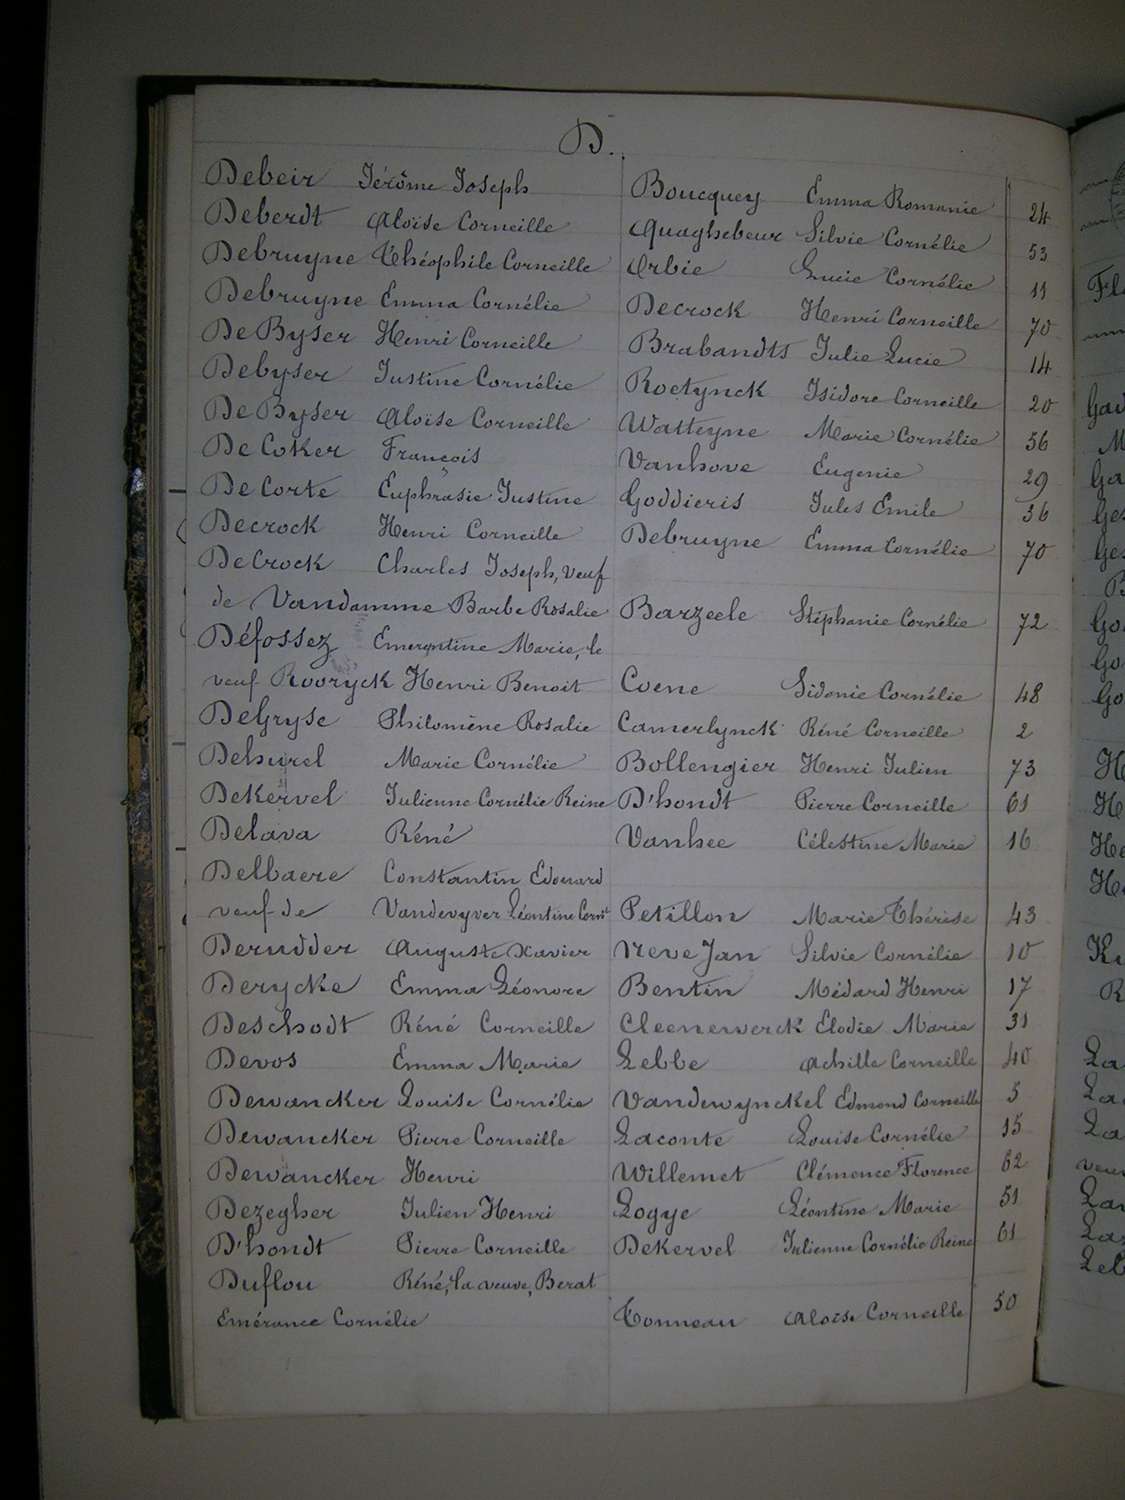 D.
Debeir Jérôme Joseph Boucquey Emma Romanie 24
Deberdt Aloïse Corneille Quaghebeur Silvie Cornélie 53
Debruyne Théophile Corneille Orbie Lucie Cornélie 11
Debruyne Emma Cornélie Decrock Henri Corneille 70
De Byser Henri Corneille Brabandts Julie Lucie 14
Debyser Justine Cornélie Roetynck Isidore Corneille 20
De Byser Aloïse Corneille Watteyne Marie Cornélie 56
De Coker François Vanhove Eugenie 29
De Corte Euphrasie Justine Goddieris Jules Emile 36
Decrock Henri Corneille Debruyne Emma Cornélie 70
DeCrock Charles Joseph, veuf
de Vandamme Barbe Rosalie Barzeele Stéphanie Cornélie 72
Défossez Emerentine Marie, le
veuf Rooryck Henri Benoit Coene Sidonie Cornélie 48
DeGryse Philomène Rosalie Camerlynck Réné Corneille 2
Dehurel Marie Cornélie Bollengier Henri Julien 73
DeKervel Julienne Cornélie Reine D'hondt Pierre Corneille 61
Delava Réné Vanhee Célestine Marie 16
Delbaere Constantin Edouard
veuf de Vandevyver Léontine Petillon Marie Thérèse 43
Derudder Auguste Xavier NeveJan Silvie Cornélie 10
Derycke Emma Léonore Bentin Médard Henri 17
Deschodt Réné Corneille Cleenewerck Elodie Marie 31
Devos Emma Marie Lebbe Achille Corneille 40
Dewancker Louise Cornélie Vandewynckel Edmond Corneille 5
Dewancker Pierre Corneille Laconte Louise Cornélie 15
Dewancker Henri Willemet Clémence Florence 62
Dezegher Julien Henri Logye Léontine Marie 51
D'hondt Pierre Corneille DeKervel Julienne Cornélie Reine 61
Duflou Réné, la veuve, Berat
Emérance Cornélie Tonneau Aloïse Corneille 50